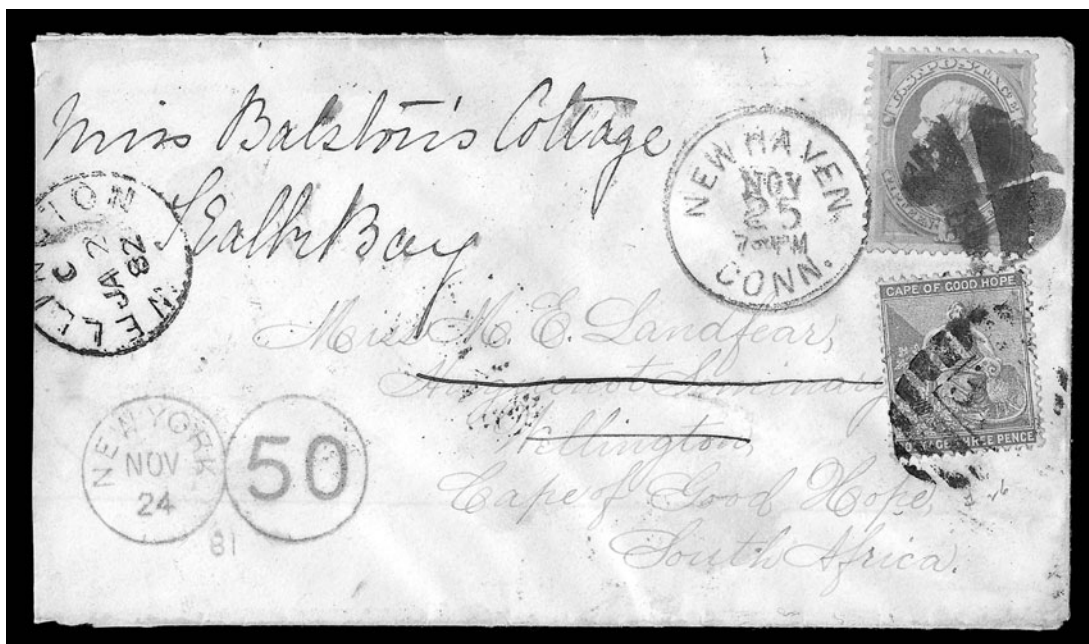 Miss Balston's Cottage
Kalk Bay
NEW HAVEN
NOV
25
7 PM
CONN.
U.S. POSTAGE
CAPE OF GOOD HOPE
POSTAGE THREE PENCE
WELLINGTON
C
JA 2
82
Miss M. E. Landfear,
Huguenot Seminary
Wellington
Cape of Good Hope,
South Africa.
NEW YORK
NOV
24
81
50